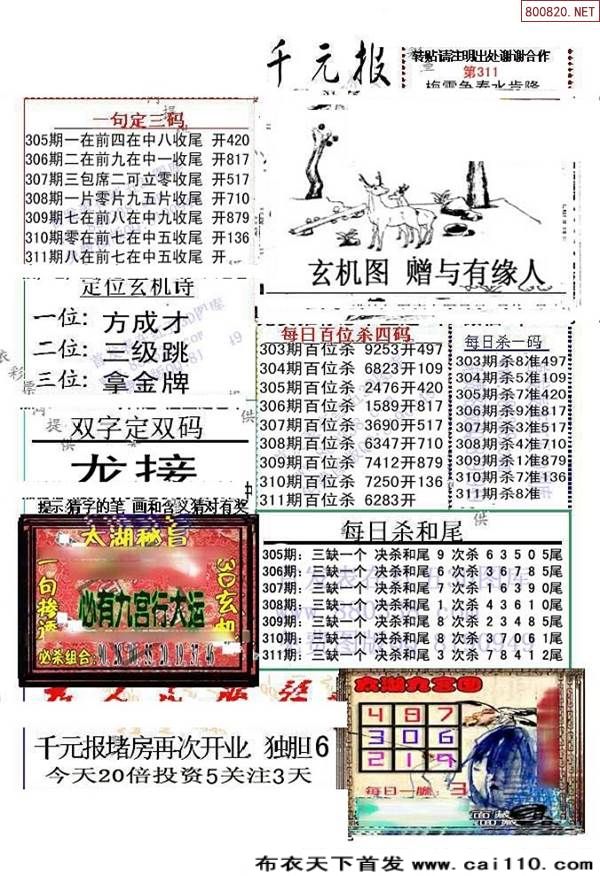 800820.NET
千元报
转贴请注明出处谢谢合作
第311
一句定三码
305期一在前四在中八收尾 开420
306期二在前九在中一收尾 开817
307期三包席二可立零收尾 开517
308期一片零片九五片收尾 开710
309期七在前八在中九收尾 开879
310期零在前七在中五收尾 开136
311期八在前七在中五收尾 开
玄机图 赠与有缘人
定位玄机诗
一位: 方成才
二位: 三级跳
三位: 拿金牌
每日百位杀四码
303期百位杀 9253开497
304期百位杀 6823开109
305期百位杀 2476开420
306期百位杀 1589开817
307期百位杀 3690开517
308期百位杀 6347开710
309期百位杀 7412开879
310期百位杀 7250开136
311期百位杀 6283开
每日杀一码
303期杀8准497
304期杀5准109
305期杀7准420
306期杀9准817
307期杀3准517
308期杀4准710
309期杀1准879
310期杀7准136
311期杀8准
双字定双码
龙接
提示:猜字的笔 画和含义猜对有奖
太湖秘旨
3D玄机
必有九宫行大运
必杀组合:
每日杀和尾
305期: 三缺一个 决杀和尾 9 次杀 6 3 5 0 5尾
306期: 三缺一个 决杀和尾 6 次杀 3 6 7 8 5尾
307期: 三缺一个 决杀和尾 7 次杀 1 6 3 9 0尾
308期: 三缺一个 决杀和尾 1 次杀 4 3 6 1 0尾
309期: 三缺一个 决杀和尾 8 次杀 2 3 4 8 5尾
310期: 三缺一个 决杀和尾 8 次杀 0 7 0 6 1尾
311期: 三缺一个 决杀和尾 3 次杀 7 8 4 1 2尾
千元报堵房再次开业 独胆6
今天20倍投资5关注3天
太湖九宫图
4 8 7
3 0 6
2 1 9
每日一胆 3
布衣天下首发 www.cai110.com